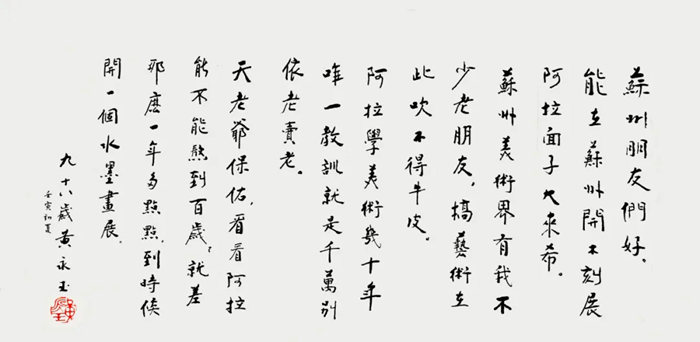 蘇州朋友們好。
能在蘇州開木刻展
阿拉面子大來希。
蘇州美術界有我不
少老朋友，搞藝術在
此吹不得牛皮。
阿拉學美術幾十年
唯一教訓就是千萬別
依老賣老。
天老爺保佑，看看阿拉
能不能熬到百歲，就差
那麽一年多點點，到時候
開一個水墨畫展。
九十八歲黃永玉
壬寅初夏